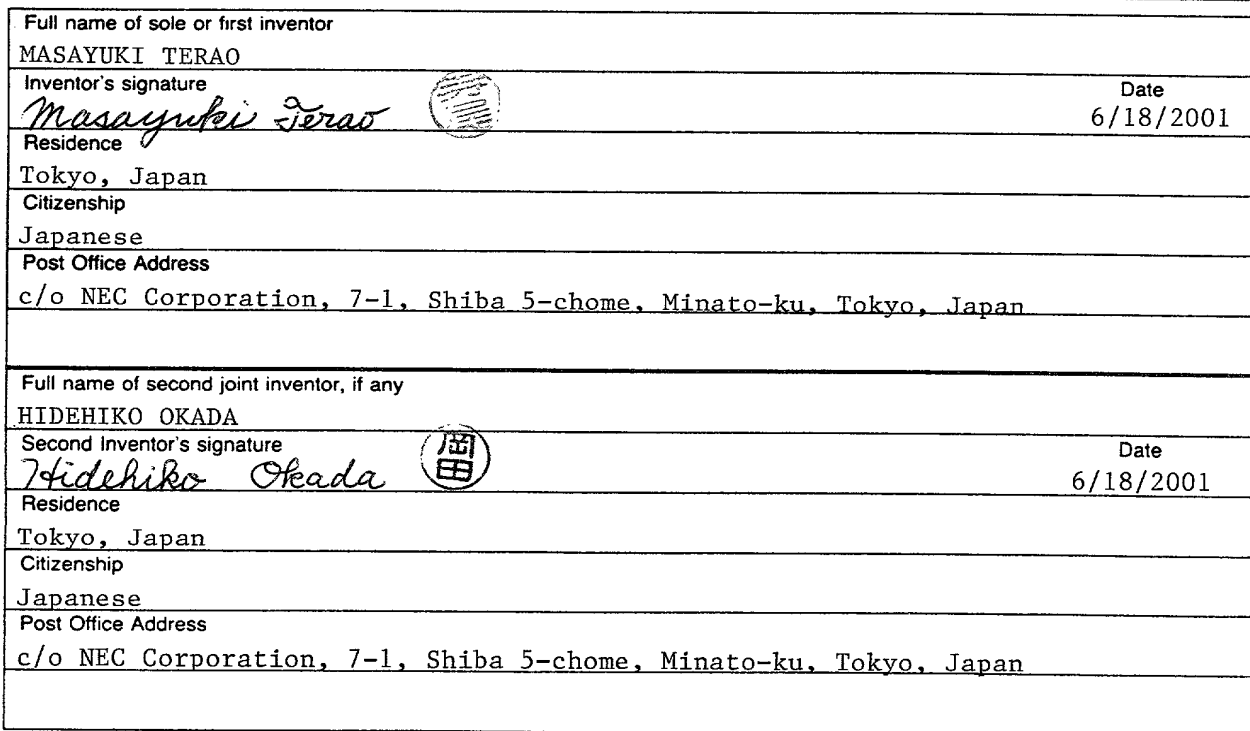 Full name of sole or first inventor
MASAYUKI TERAO
Inventor's signature
Date
Masayuki Terao
6/18/2001
Residence
Tokyo, Japan
Citizenship
Japanese
Post Office Address
c/o NEC Corporation, 7-1, Shiba 5-chome, Minato-ku, Tokyo, Japan
Full name of second joint inventor, if any
HIDEHIKO OKADA
Second Inventor's signature
岡田
Date
Hidehiko Okada
6/18/2001
Residence
Tokyo, Japan
Citizenship
Japanese
Post Office Address
c/o NEC Corporation, 7-1, Shiba 5-chome, Minato-ku, Tokyo, Japan